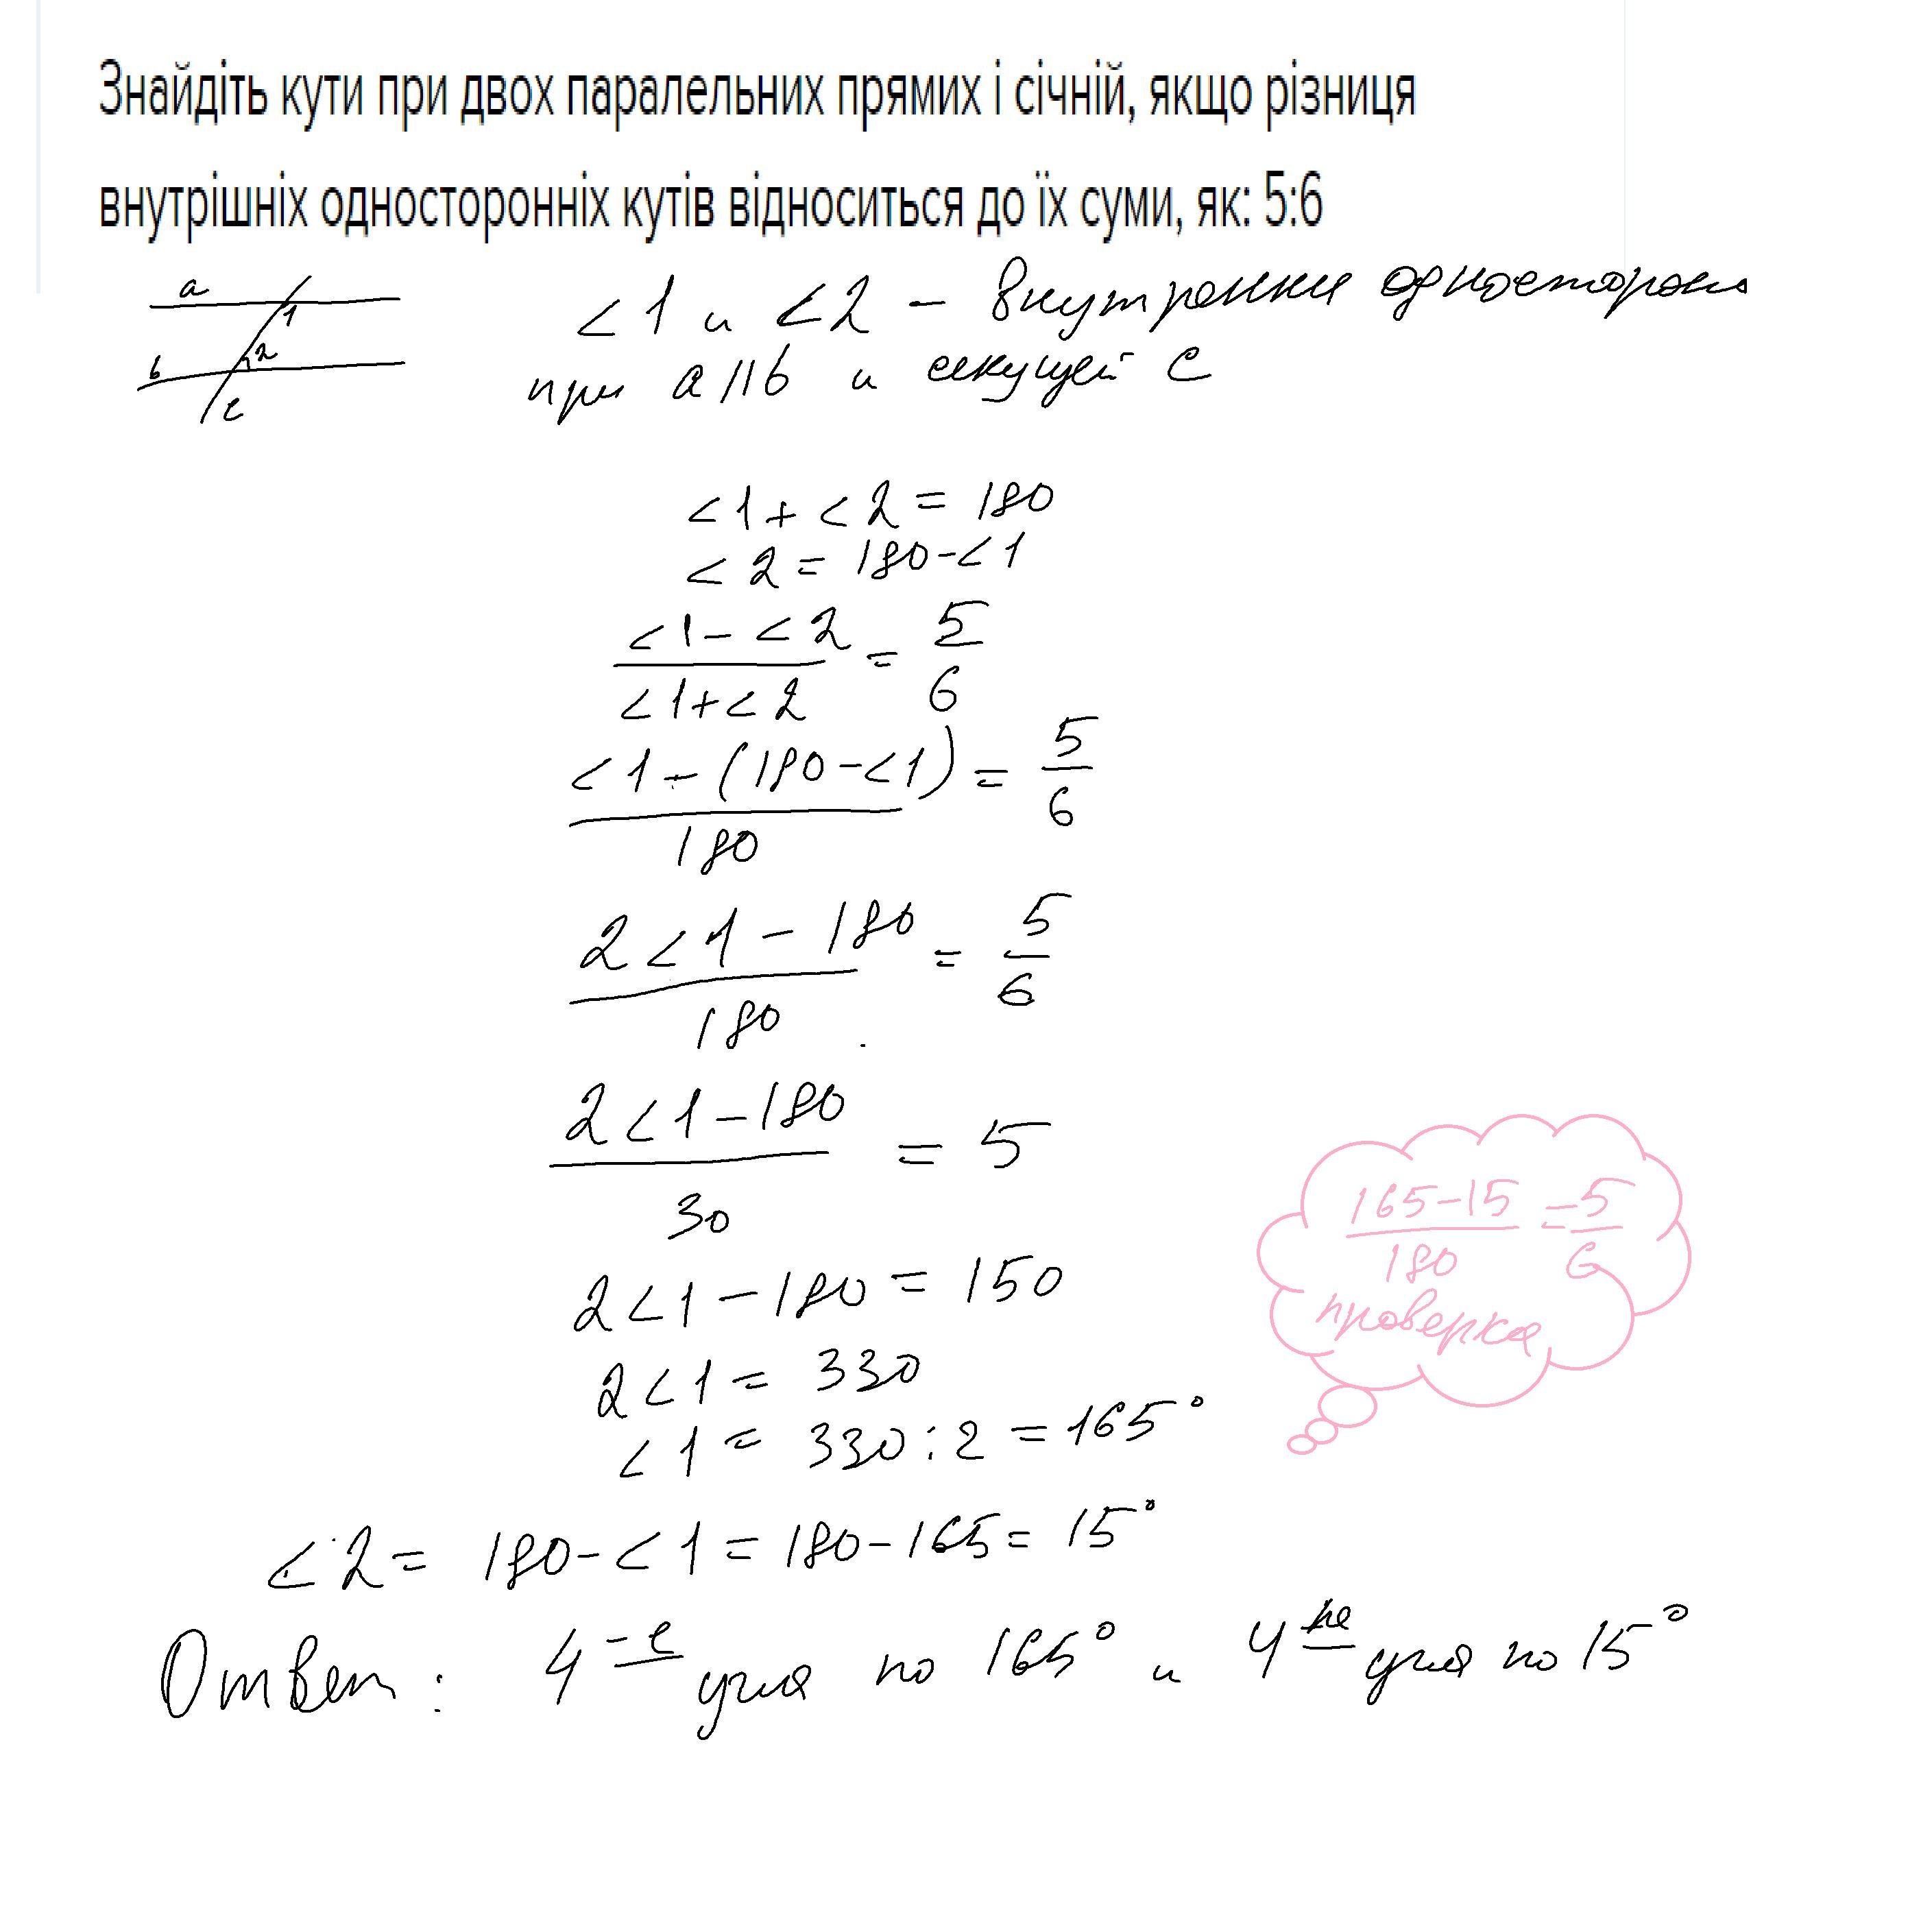 Знайдіть кути при двох паралельних прямих і січній, якщо різниця
внутрішніх односторонніх кутів відноситься до їх суми, як: 5:6
a
1
b
2
c
<1 и <2 - внутренни односторон
при a||b и секущей c
<1+<2=180
<2=180-<1
<1-<2 / <1+<2 = 5/6
<1-(180-<1) / 180 = 5/6
2<1-180 / 180 = 5/6
2<1-180 / 30 = 5
2<1-180=150
2<1=330
<1=330:2=165°
<2=180-<1=180-165=15°
165-15 / 180 = 5/6
проверка
Ответ: 4-е угла по 165° и 4-ре угла по 15°